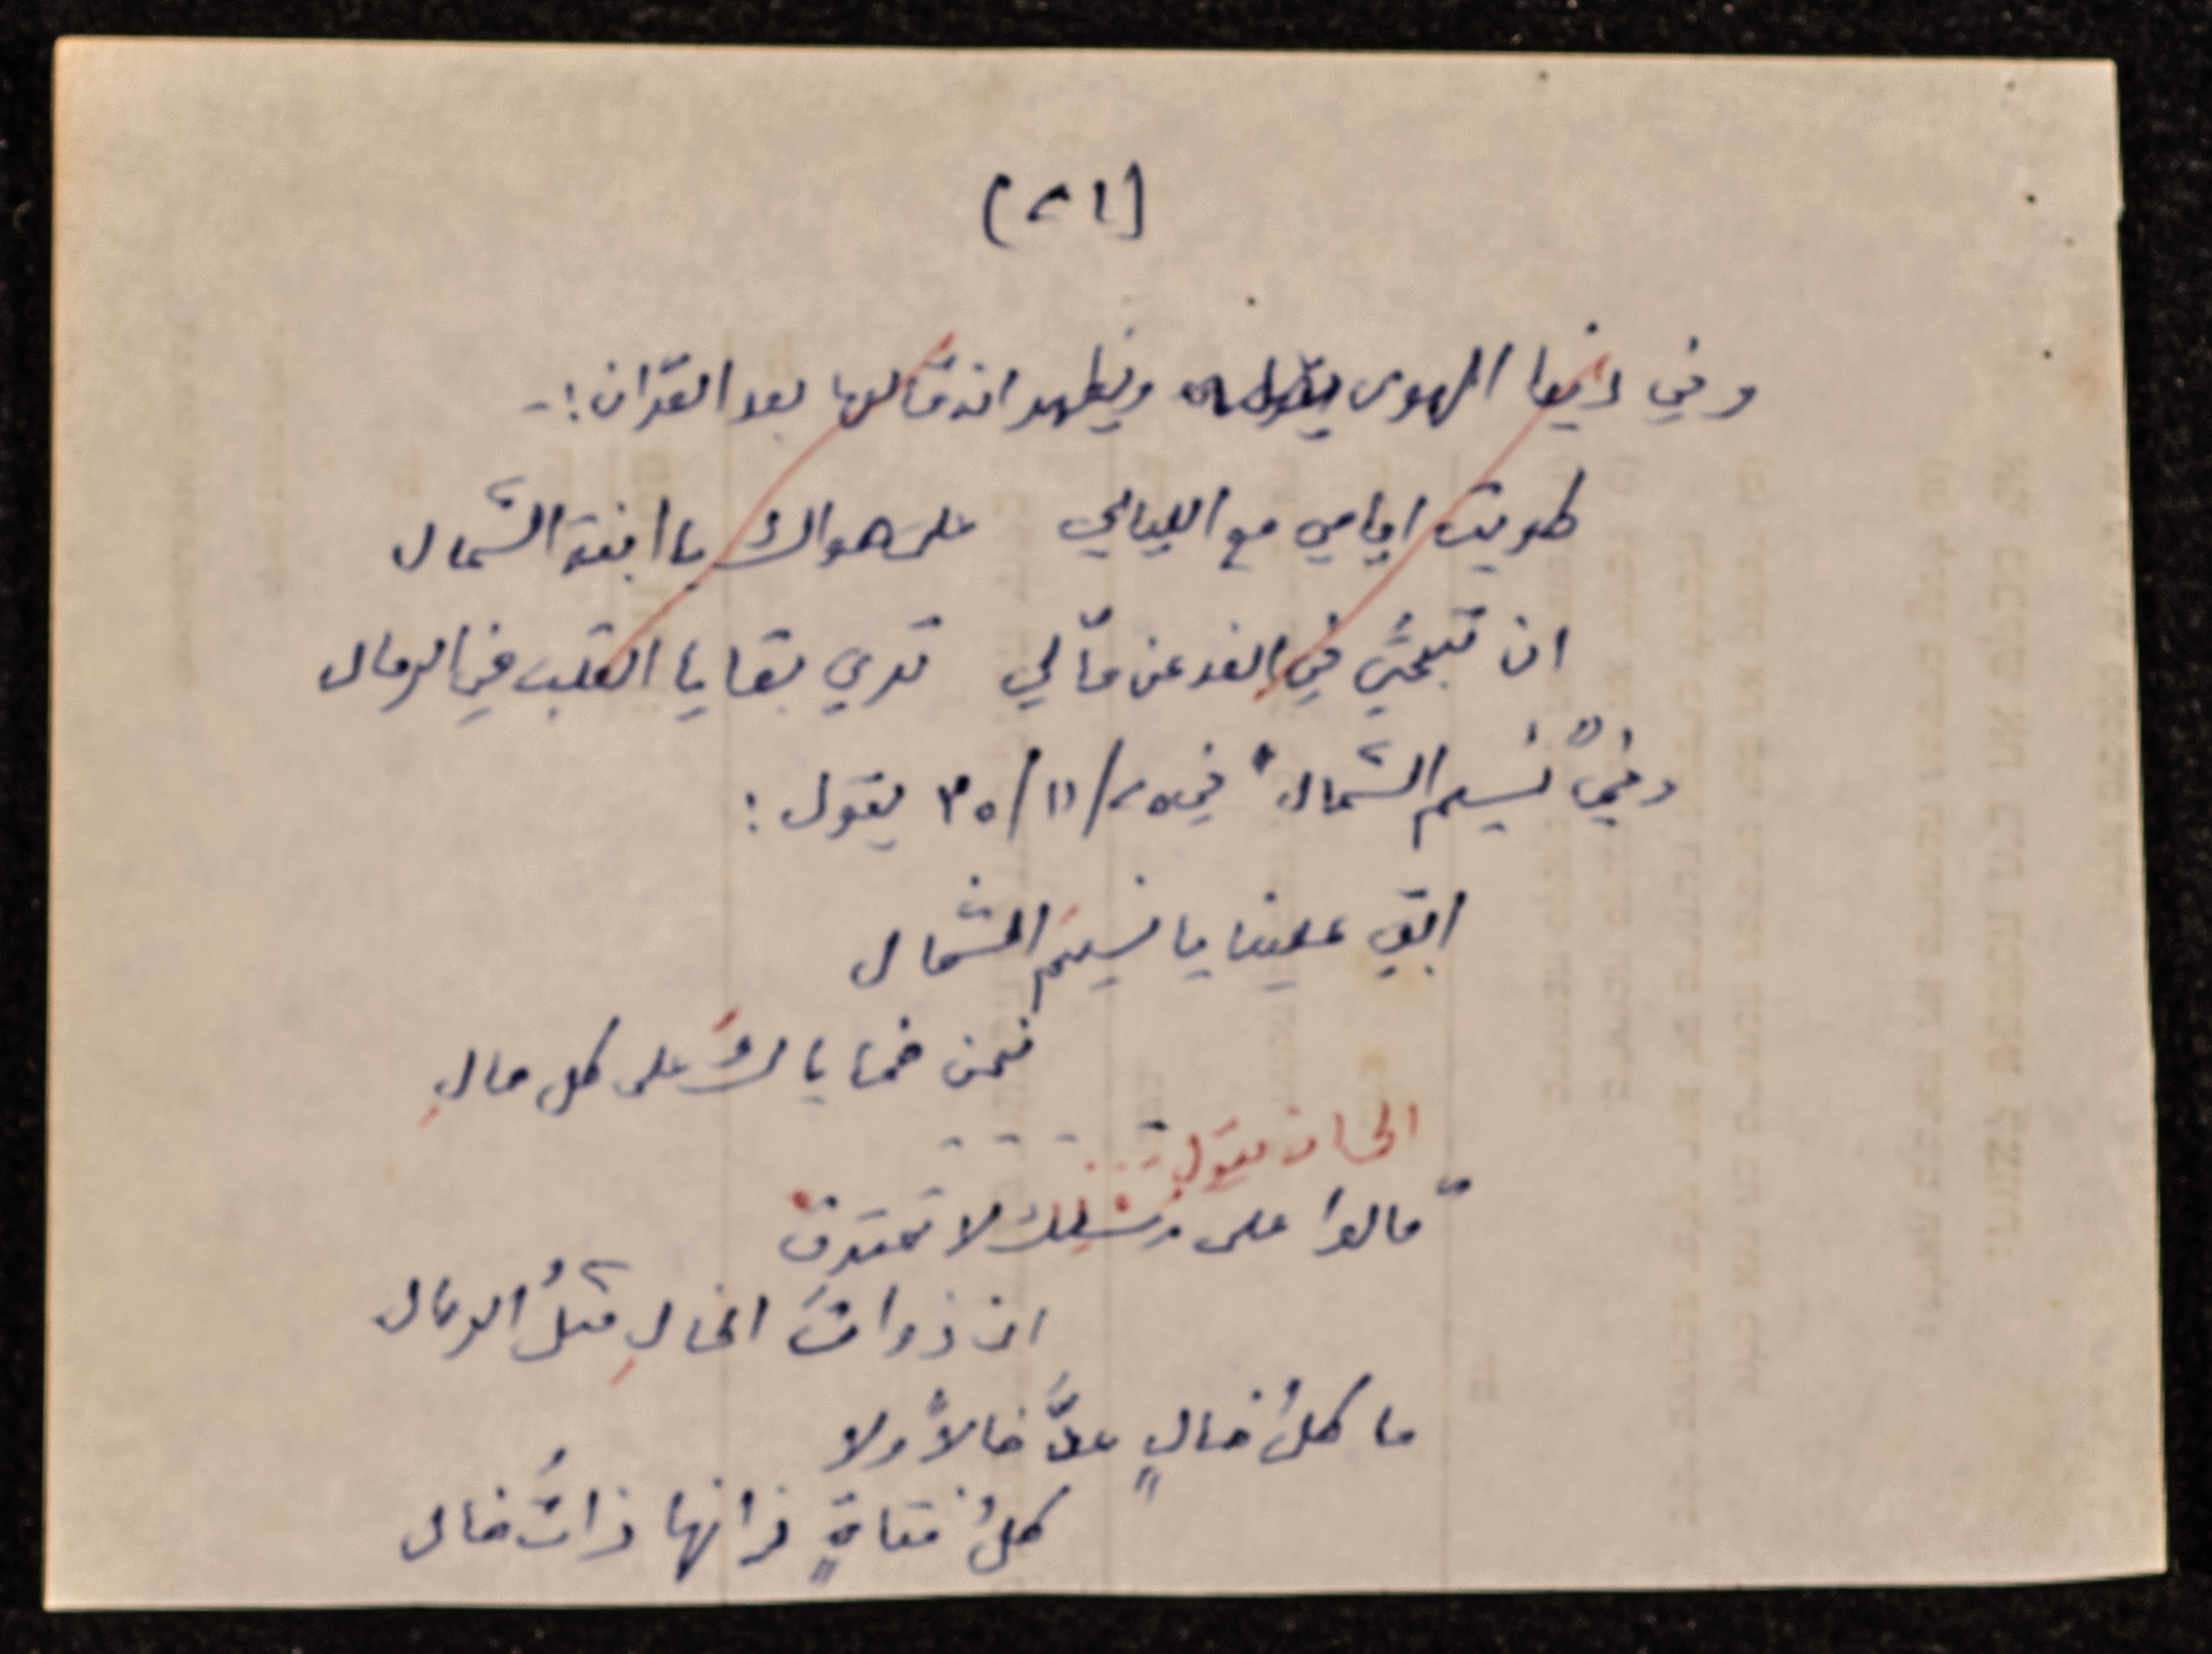 (٢١)
وفي دنيا الهوى ويظهر انه قالها بعد القران :-
طويت ايامي مع الليالي على هواك يا ابنة الشمال
ان تبحثي في الغد عن مآلي تري بقايا القلب في الرمال
وفي "نسيم الشمال" في ٢٥/١١/٣٥ يقول :
ابقي علينا يا نسيمَ الشمال
نحن ضحاياكَ على كل حالِ
- - - -
الى ان يقول
قالوا على رسلك لا تحترق
ان ذواتَ الخالِ مثلُ الرمال
ما كلُ خالٍ عدَّ خالاً ولا
كلُ فتاةٍ زانها ذاتُ خال